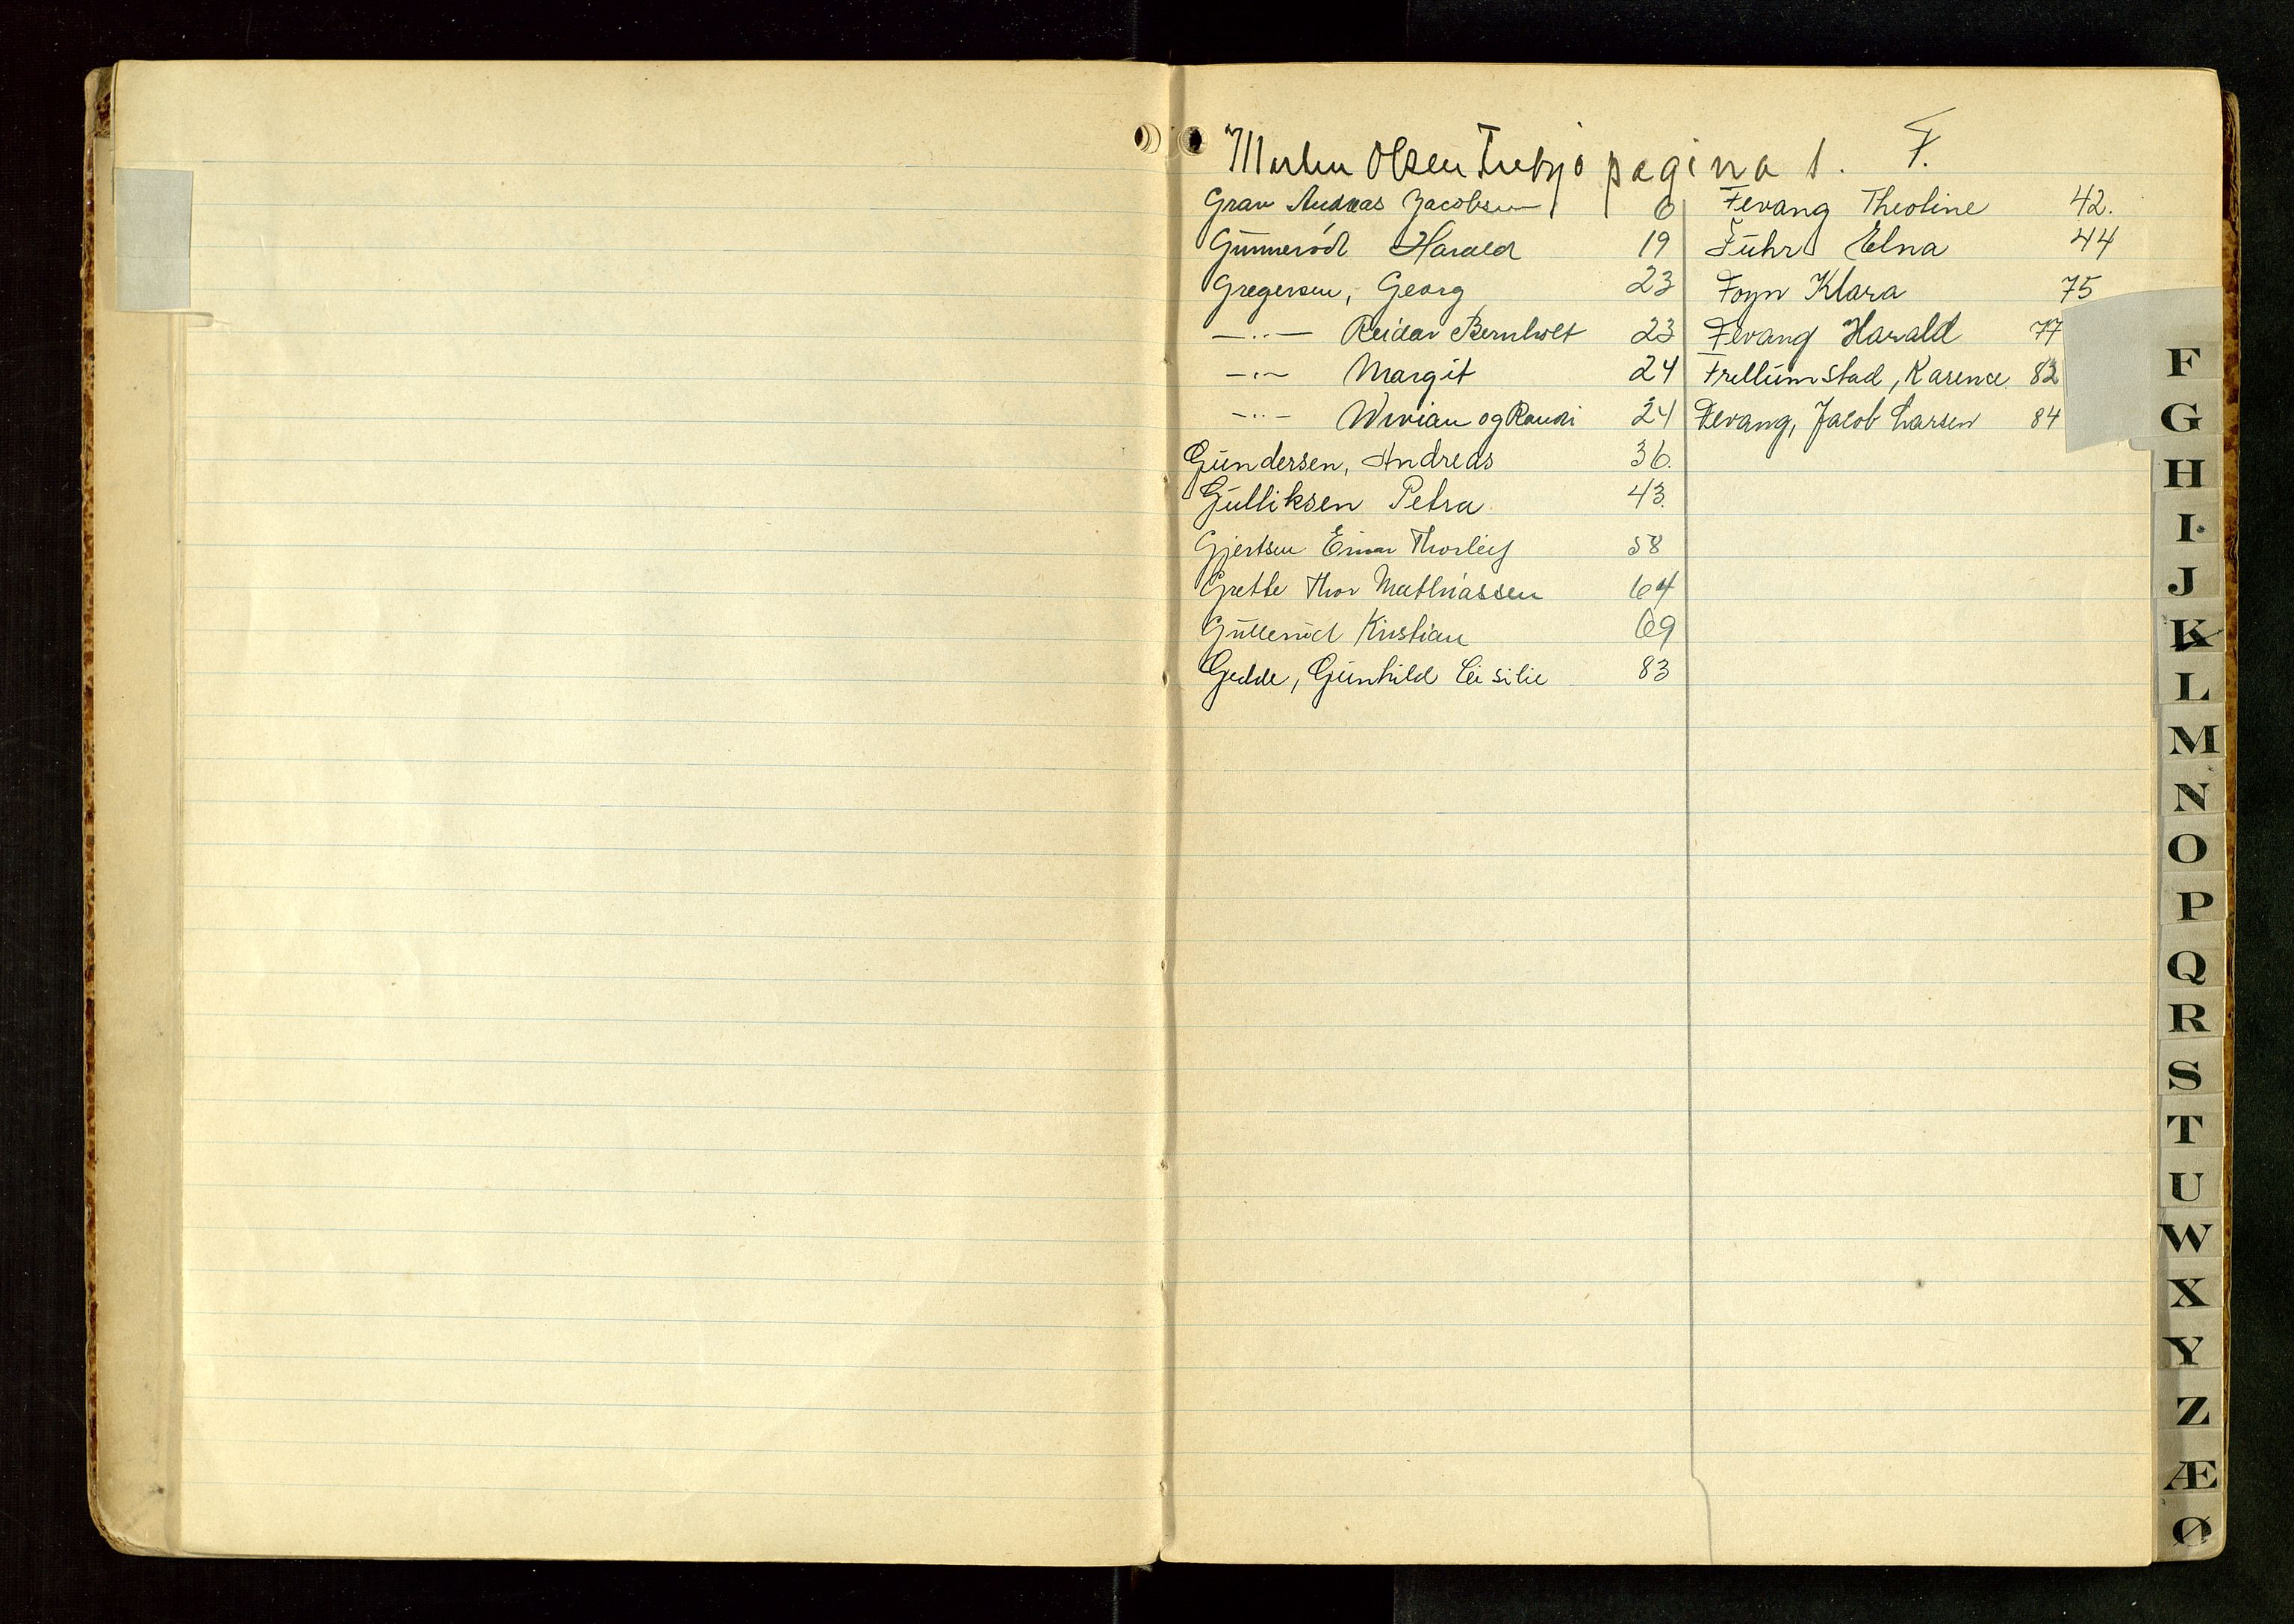 Morten Olsen pagina 1. F.
Grav Andreas Jacobsen 6
Gunnerød Harald 19
Gregersen, Georg 23
—..— Reidar Bernholt 23
—..— Margit 24
—..— Wivian og Randi 24
Gundersen, Andreas 36.
Gulliksen Petra 43.
Gjertsen Einar Thorleif 58
Grette Thor Mathiassen 64
Gullerud Kristian 69
Gedde, Gunhild 83
Fevang Theoline 42.
Führ Elna 44
Foyn Klara 75
Fevang Harald 77
Frellumstad, Karence 82
Fevang, Jacob Larsen 84
F
G
H
I
J
K
L
M
N
O
P
Q
R
S
T
U
W
X
Y
Z
Æ
Ø